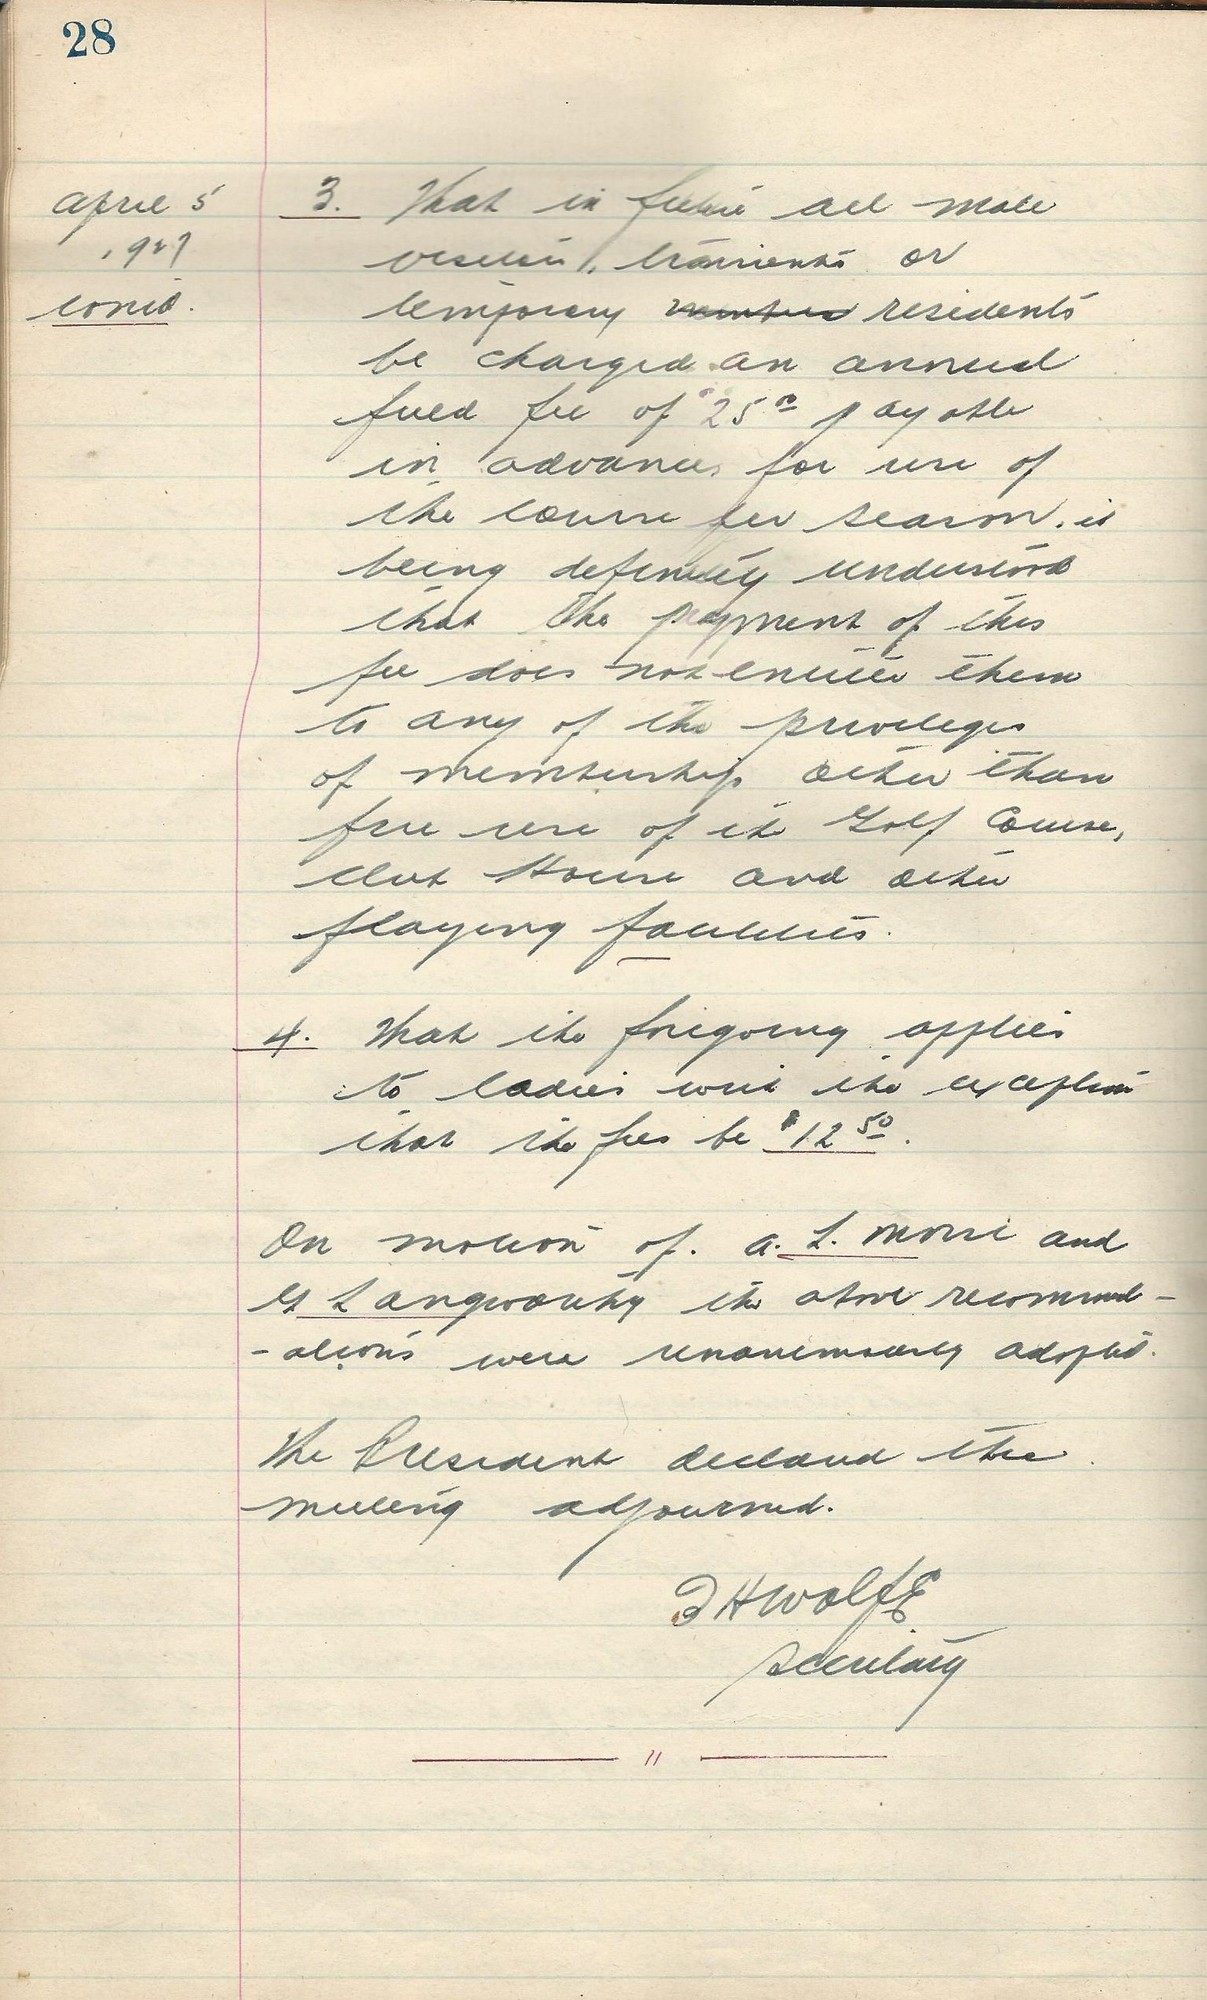 28
April 5
1927
cont'd.
3. That in future all male
visitors, transients or
temporary members residents
be charged an annual
fixed fee of $25.00 payable
in advance for use of
the course per season, it
being definitely understood
that the payment of this
fee does not entitle them
to any of the privileges
of membership other than
free use of the Golf Course,
Club House and other
playing facilities.
4. That the foregoing applies
to ladies with the exception
that the fees be $12.50.
On motion of A. L. Morse and
G Langworthy the above recommend-
-ations were unanimously adopted.
The President declared the
meeting adjourned.
F H Wolfe
Secretary